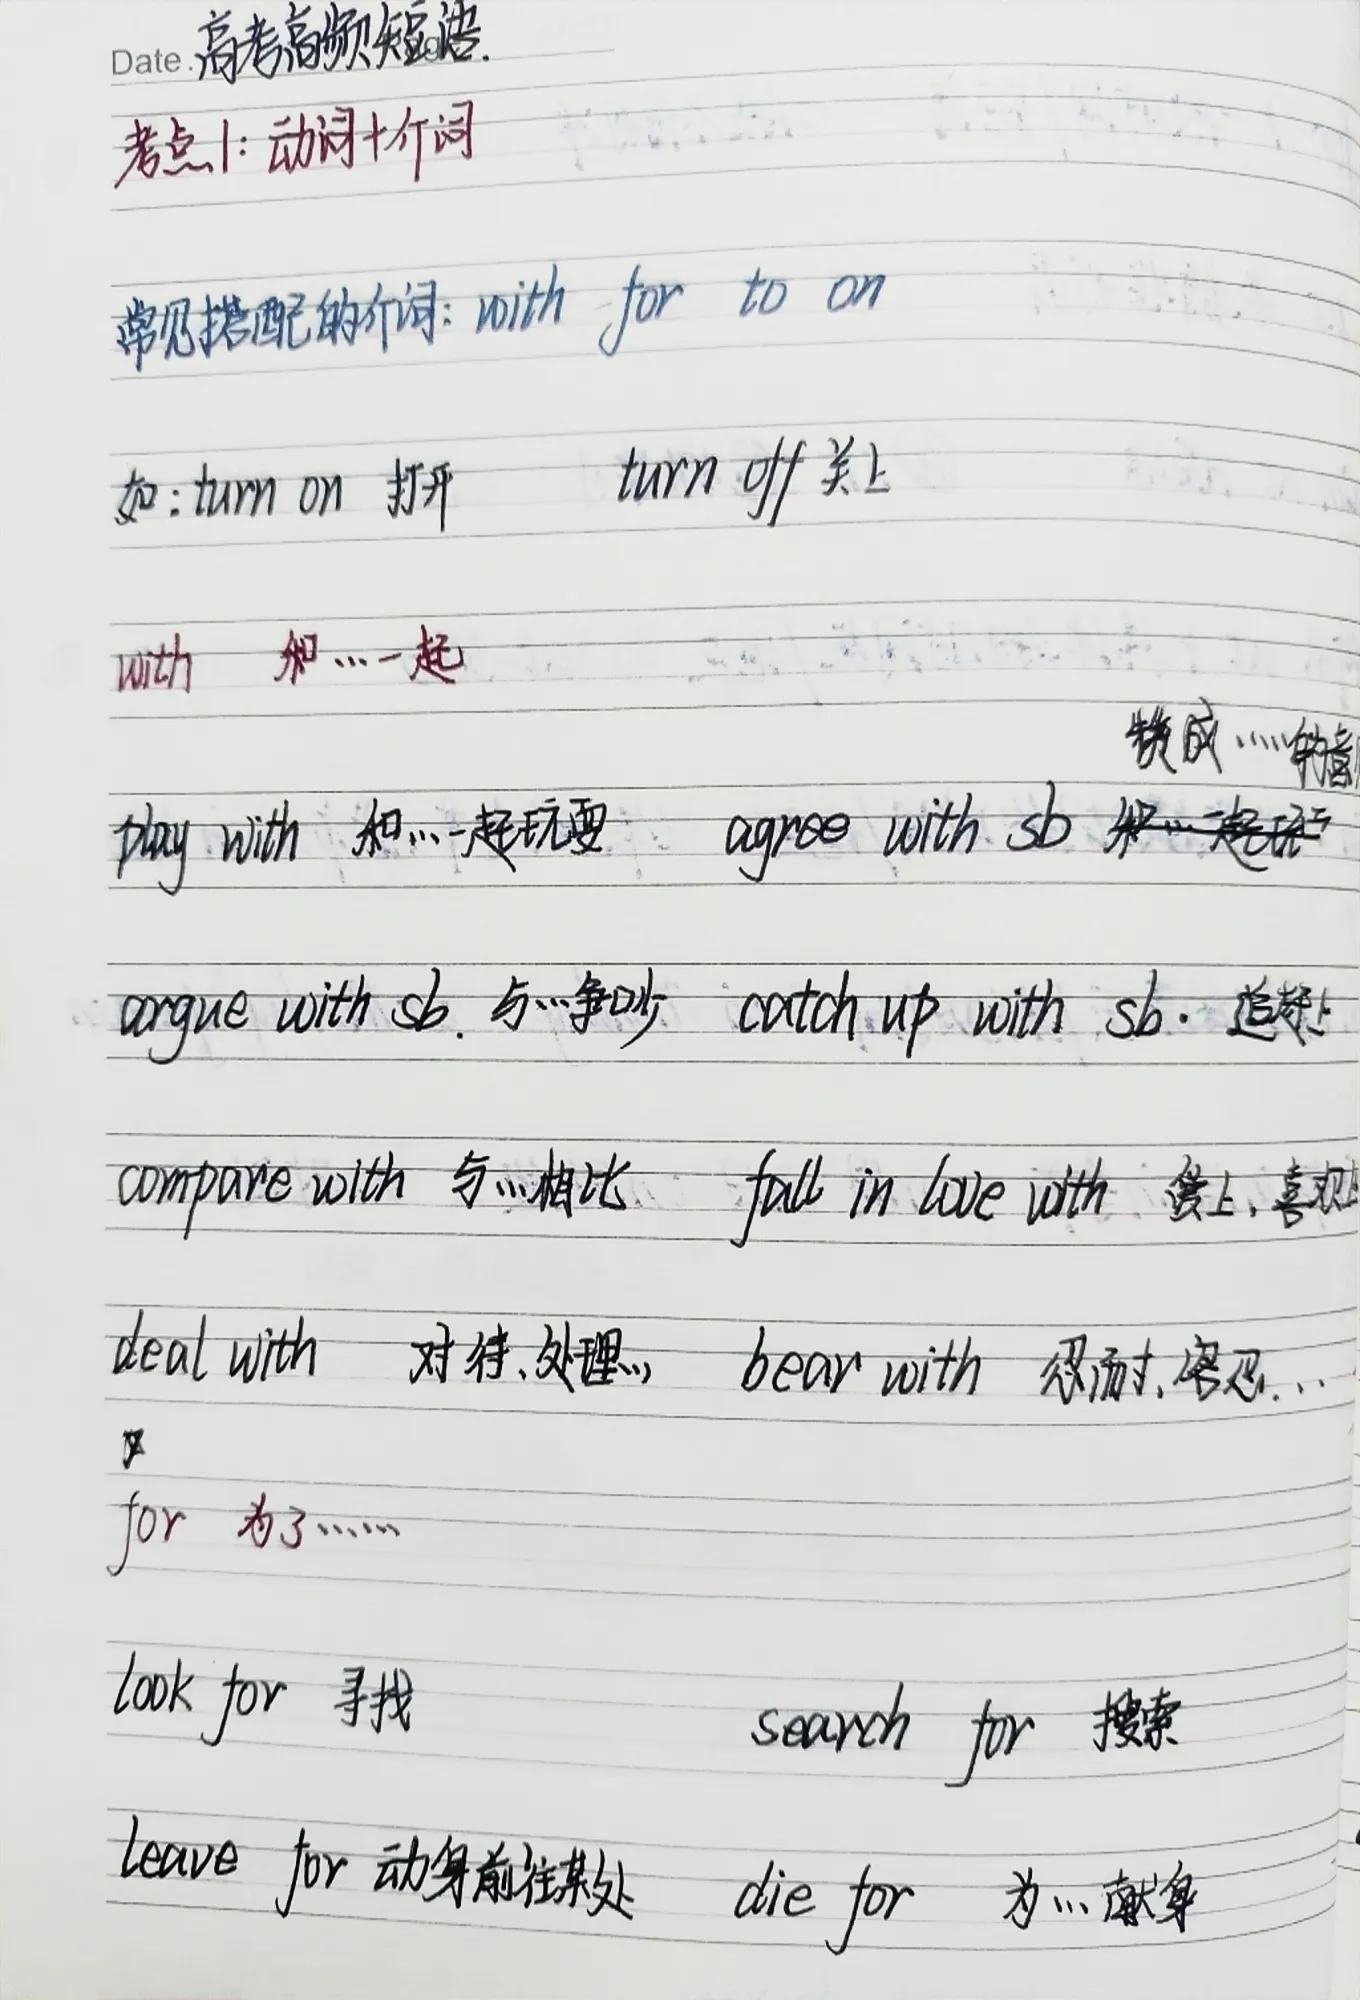 Date. 高考高频短语.
考点1: 动词+介词
常见搭配的介词: with for to on
如: turn on 打开 turn off 关上
with 和…一起
赞成……的意
play with 和…一起玩耍 agree with sb 和…一起玩
argue with sb. 与…争吵 catch up with sb. 追赶上
compare with 与…相比 fall in love with 爱上, 喜欢上
deal with 对待、处理… bear with 忍耐、容忍…
for 为了……
look for 寻找 search for 搜索
leave for 动身前往某处 die for 为…献身